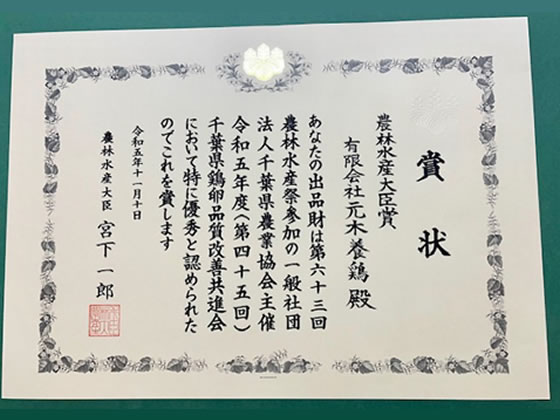 賞状
農林水産大臣賞
有限会社元木養鶏殿
あなたの出品財は第六十三回
農林水産祭参加の一般社団
法人千葉県農業協会主催
令和五年度(第四十五回)
千葉県鶏卵品質改善共進会
において特に優秀と認められた
のでこれを賞します
令和五年十一月十日
農林水産大臣宮下一郎